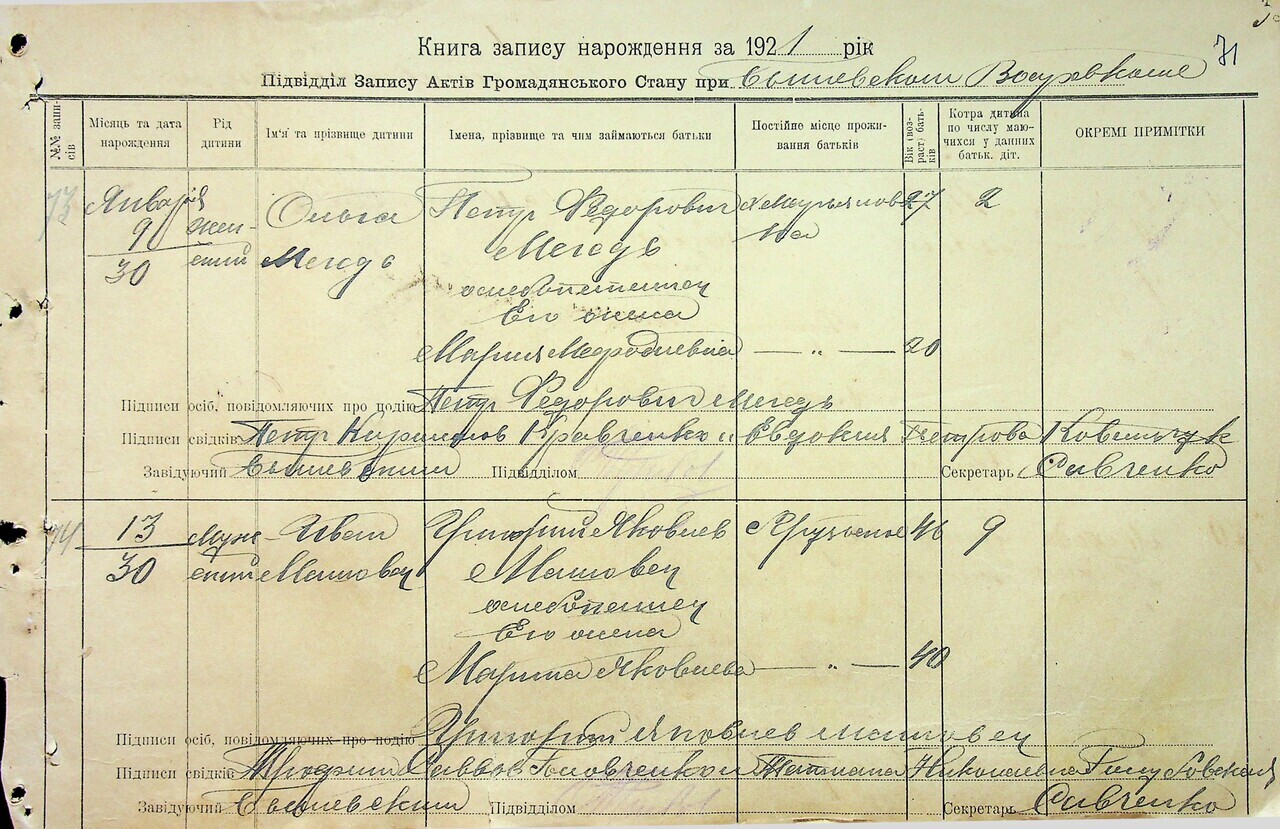 71
Книга запису нарождення за 1921 рік
Підвідділ Запису Актів Громадянського Стану при
№№ запи-сів
Місяць та дата нарождення
Рід дитини
Ім'я та прізвище дитини
Імена, прізвище та чим займаються батьки
Постійне місце прожи-вання батьків
Вік (воз-раст) бать-ків
Котра дитина по числу маю-чихся у данных батьк. діт.
ОКРЕМІ ПРИМІТКИ
73 Января Жен- Ольга Петр Федорович 27 2
9 ский Мегедь Мегедь
30 хлебопашец
Его жена
Мария — „ — 20
Підписи осіб, повідомляючих про подію Петр Федорович Мегедь
Підписи свідків Петр Кравченко и Евдокия Петрова
Завідуючий Підвідділом Секретарь Савченко
74 13 Муж- Иван Григорий Яковлев 46 9
30 ский Машовец Машовец
хлебопашец
Его жена
Марина Яковлева — „ — 40
Підписи осіб, повідомляючих про подію Григорий Яковлев Машовец
Підписи свідків Трофим Саввов Головченко и Татиана Николаевна
Завідуючий Підвідділом Секретарь Савченко